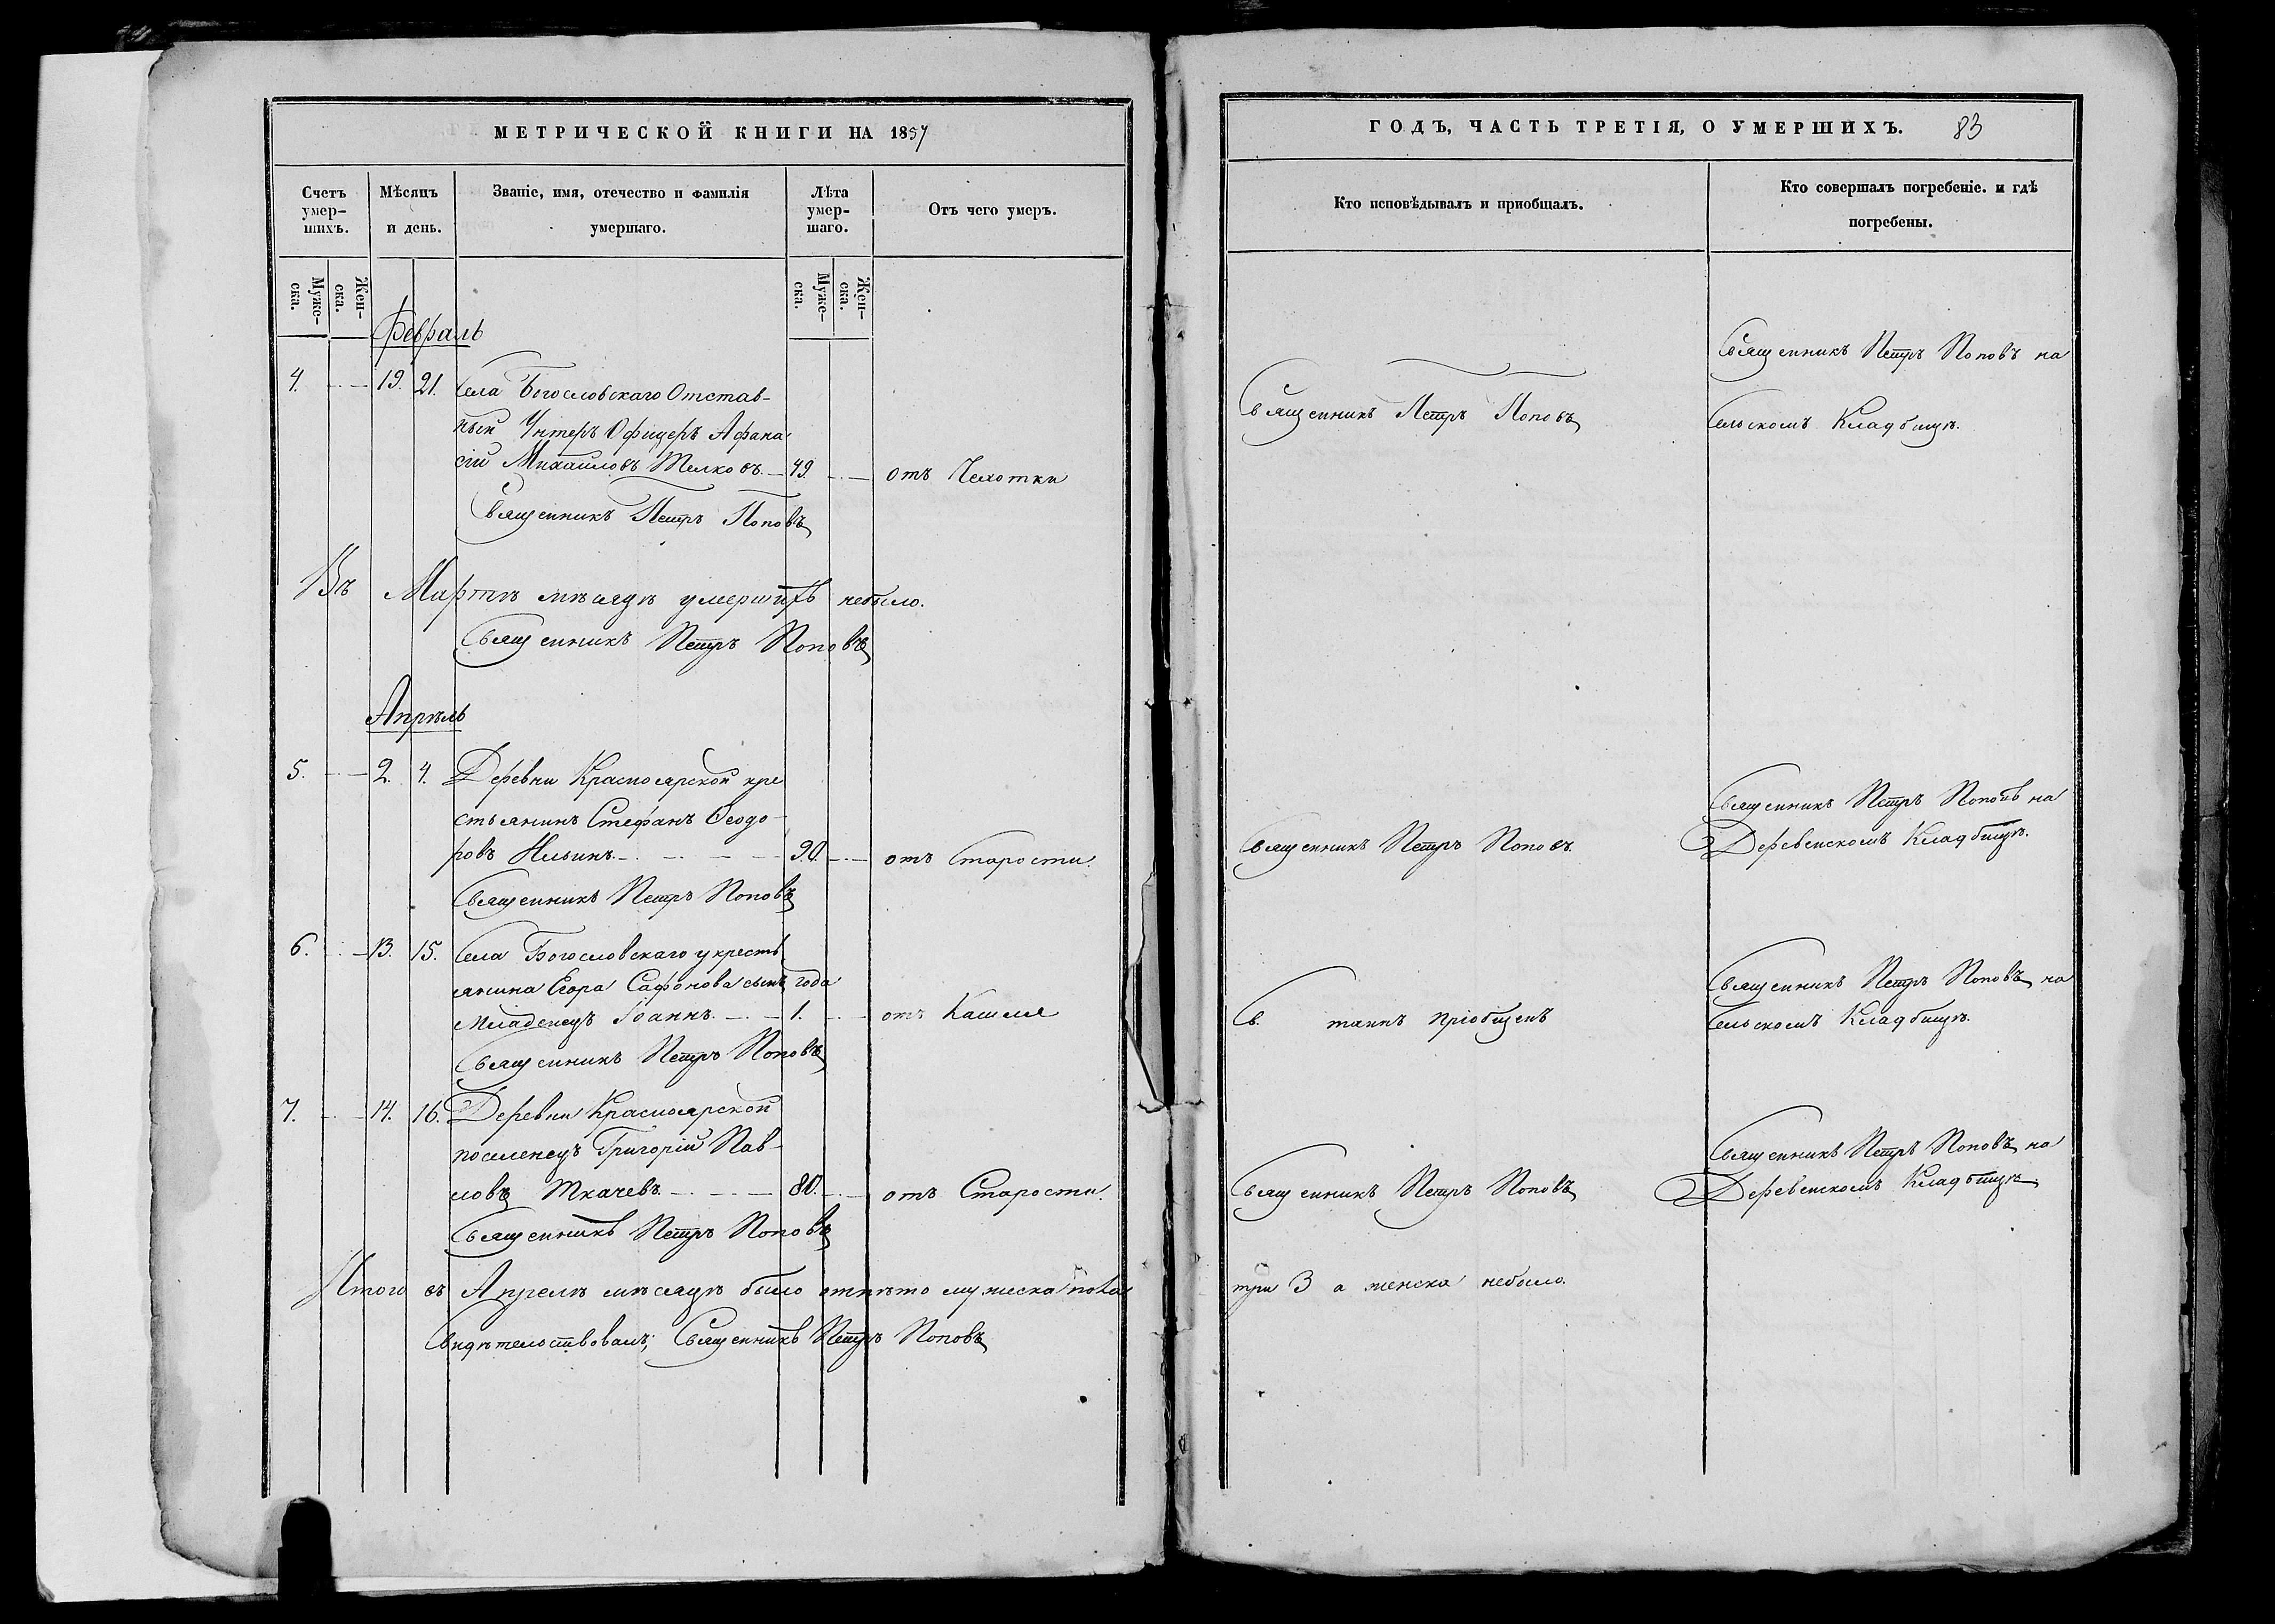 МЕТРИЧЕСКОЙ КНИГИ НА 1857
Счетъ умерших. Мѣсяцъ и день. Званіе, имя, отечество и фамилія умершаго. Лѣта умершаго. Отъ чего умеръ.
Мужеска. Женска. Мужеска. Женска.
Февраль
4. 19. 21. Села Богословскаго Отстав-
ный Унтеръ Офицеръ Афана
сій Михаиловъ Шелковъ. 49. отъ Чахотки
Священникъ Петръ Поповъ
Въ Мартѣ мѣсяцѣ умершихъ небыло.
Священникъ Петръ Поповъ
Апрѣль
5. 2. 4. Деревни Красноярской кре
стьянинъ Стефанъ Ѳеодо-
ровъ Ильинъ. 90. отъ Старости.
Священникъ Петръ Поповъ
6. 13. 15. Села Богословскаго у кресть
янина Егора Сафонова сынъ года
младенецъ Іоаннъ. 1. отъ Кашля
Священникъ Петръ Поповъ
7. 14. 16. Деревни Красноярской
поселенецъ Григорій Пав-
ловъ Ткачевъ. 80. отъ Старости.
Священникъ Петръ Поповъ
Итого въ Апрелѣ мѣсяцѣ было отпѣто мужеска пола
Свидѣтельствовалъ; Священникъ Петръ Поповъ
ГОДЪ, ЧАСТЬ ТРЕТІЯ, О УМЕРШИХЪ. 83
Кто исповѣдывалъ и приобщалъ. Кто совершалъ погребеніе. и гдѣ
погребены.
Священникъ Петръ Поповъ на
Священникъ Петръ Поповъ Сельскомъ Кладбищѣ.
Священникъ Петръ Поповъ на
Священникъ Петръ Поповъ. Деревенскомъ Кладбищѣ.
Священникъ Петръ Поповъ на
Св. таинъ пріобщенъ Сельскомъ Кладбищѣ.
Священникъ Петръ Поповъ на
Священникъ Петръ Поповъ Деревенскомъ Кладбищѣ
три 3 а женска небыло.